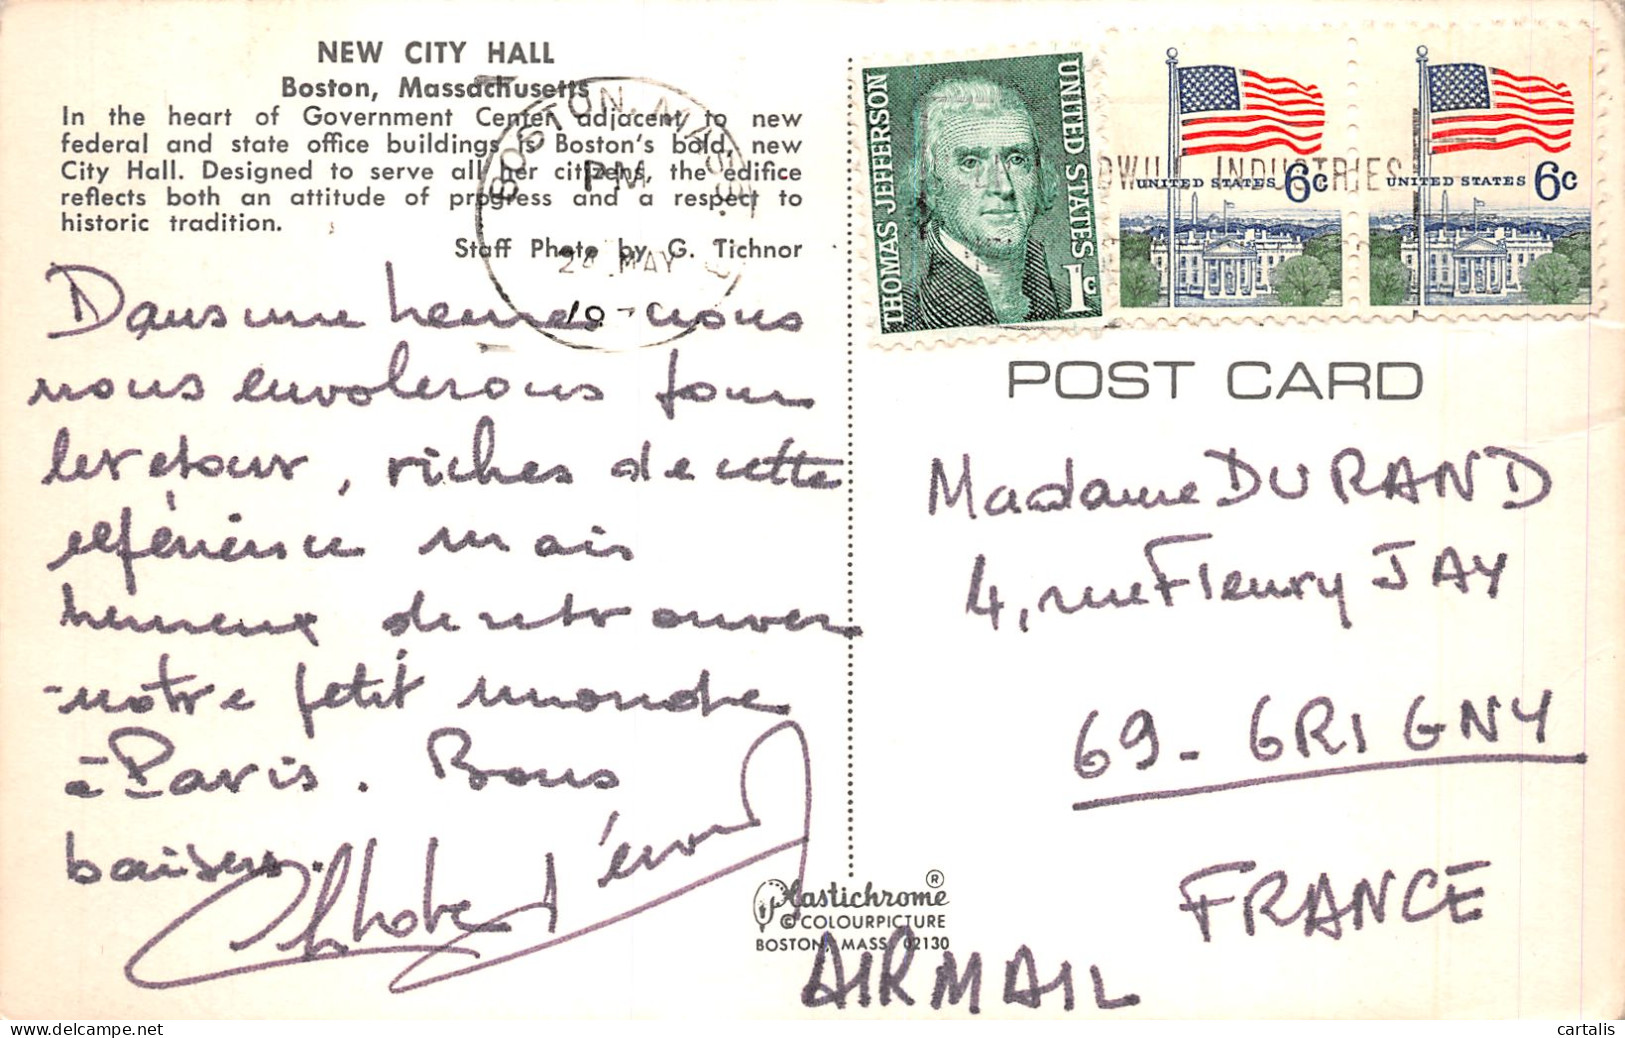 NEW CITY HALL
Boston, Massachusetts
In the heart of Government Center, adjacent to new
federal and state office buildings is Boston's bold, new
City Hall. Designed to serve all her citizens, the edifice
reflects both an attitude of progress and a respect to
historic tradition.
Staff Photo by G. Tichnor
BOSTON, MASS.
PM
MAY
Dans une heure nous
nous envolerons pour
le retour, riches de cette
expérience mais
heureux de retrouver
notre petit monde
à Paris. Bons
baisers.
THOMAS JEFFERSON
UNITED STATES
1c
UNITED STATES 6c
UNITED STATES 6c
INDUSTRIES
POST CARD
Madame DURAND
4, rue Fleury JAY
69 - GRIGNY
FRANCE
Plastichrome ®
© COLOURPICTURE
BOSTON, MASS. 02130
AIRMAIL
cartalis